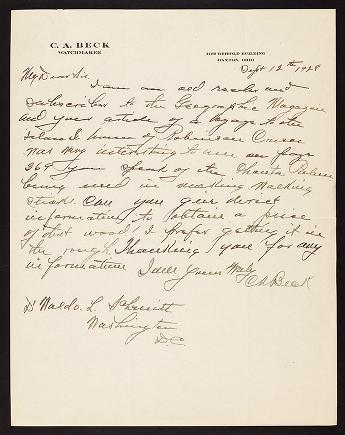 C. A. BECK
WATCHMAKER
1129 REIBOLD BUILDING
DAYTON, OHIO
Sept 12th 1928
My Dear Sir.
I am an old reader and
subscriber to the Geographic Magazine
and your article of a voyage to the
Island home of Robinson Crusoe
was very interesting to me on page
367 you speak of the Chonta Palm
being used in making walking
sticks. Can you give direct
information to obtain a piece
of that wood. I prefer getting it in
the rough. Thanking you for any
information I am Yours Truly
C A Beck
Dr Waldo. L. Schmitt
Washington
D.C.